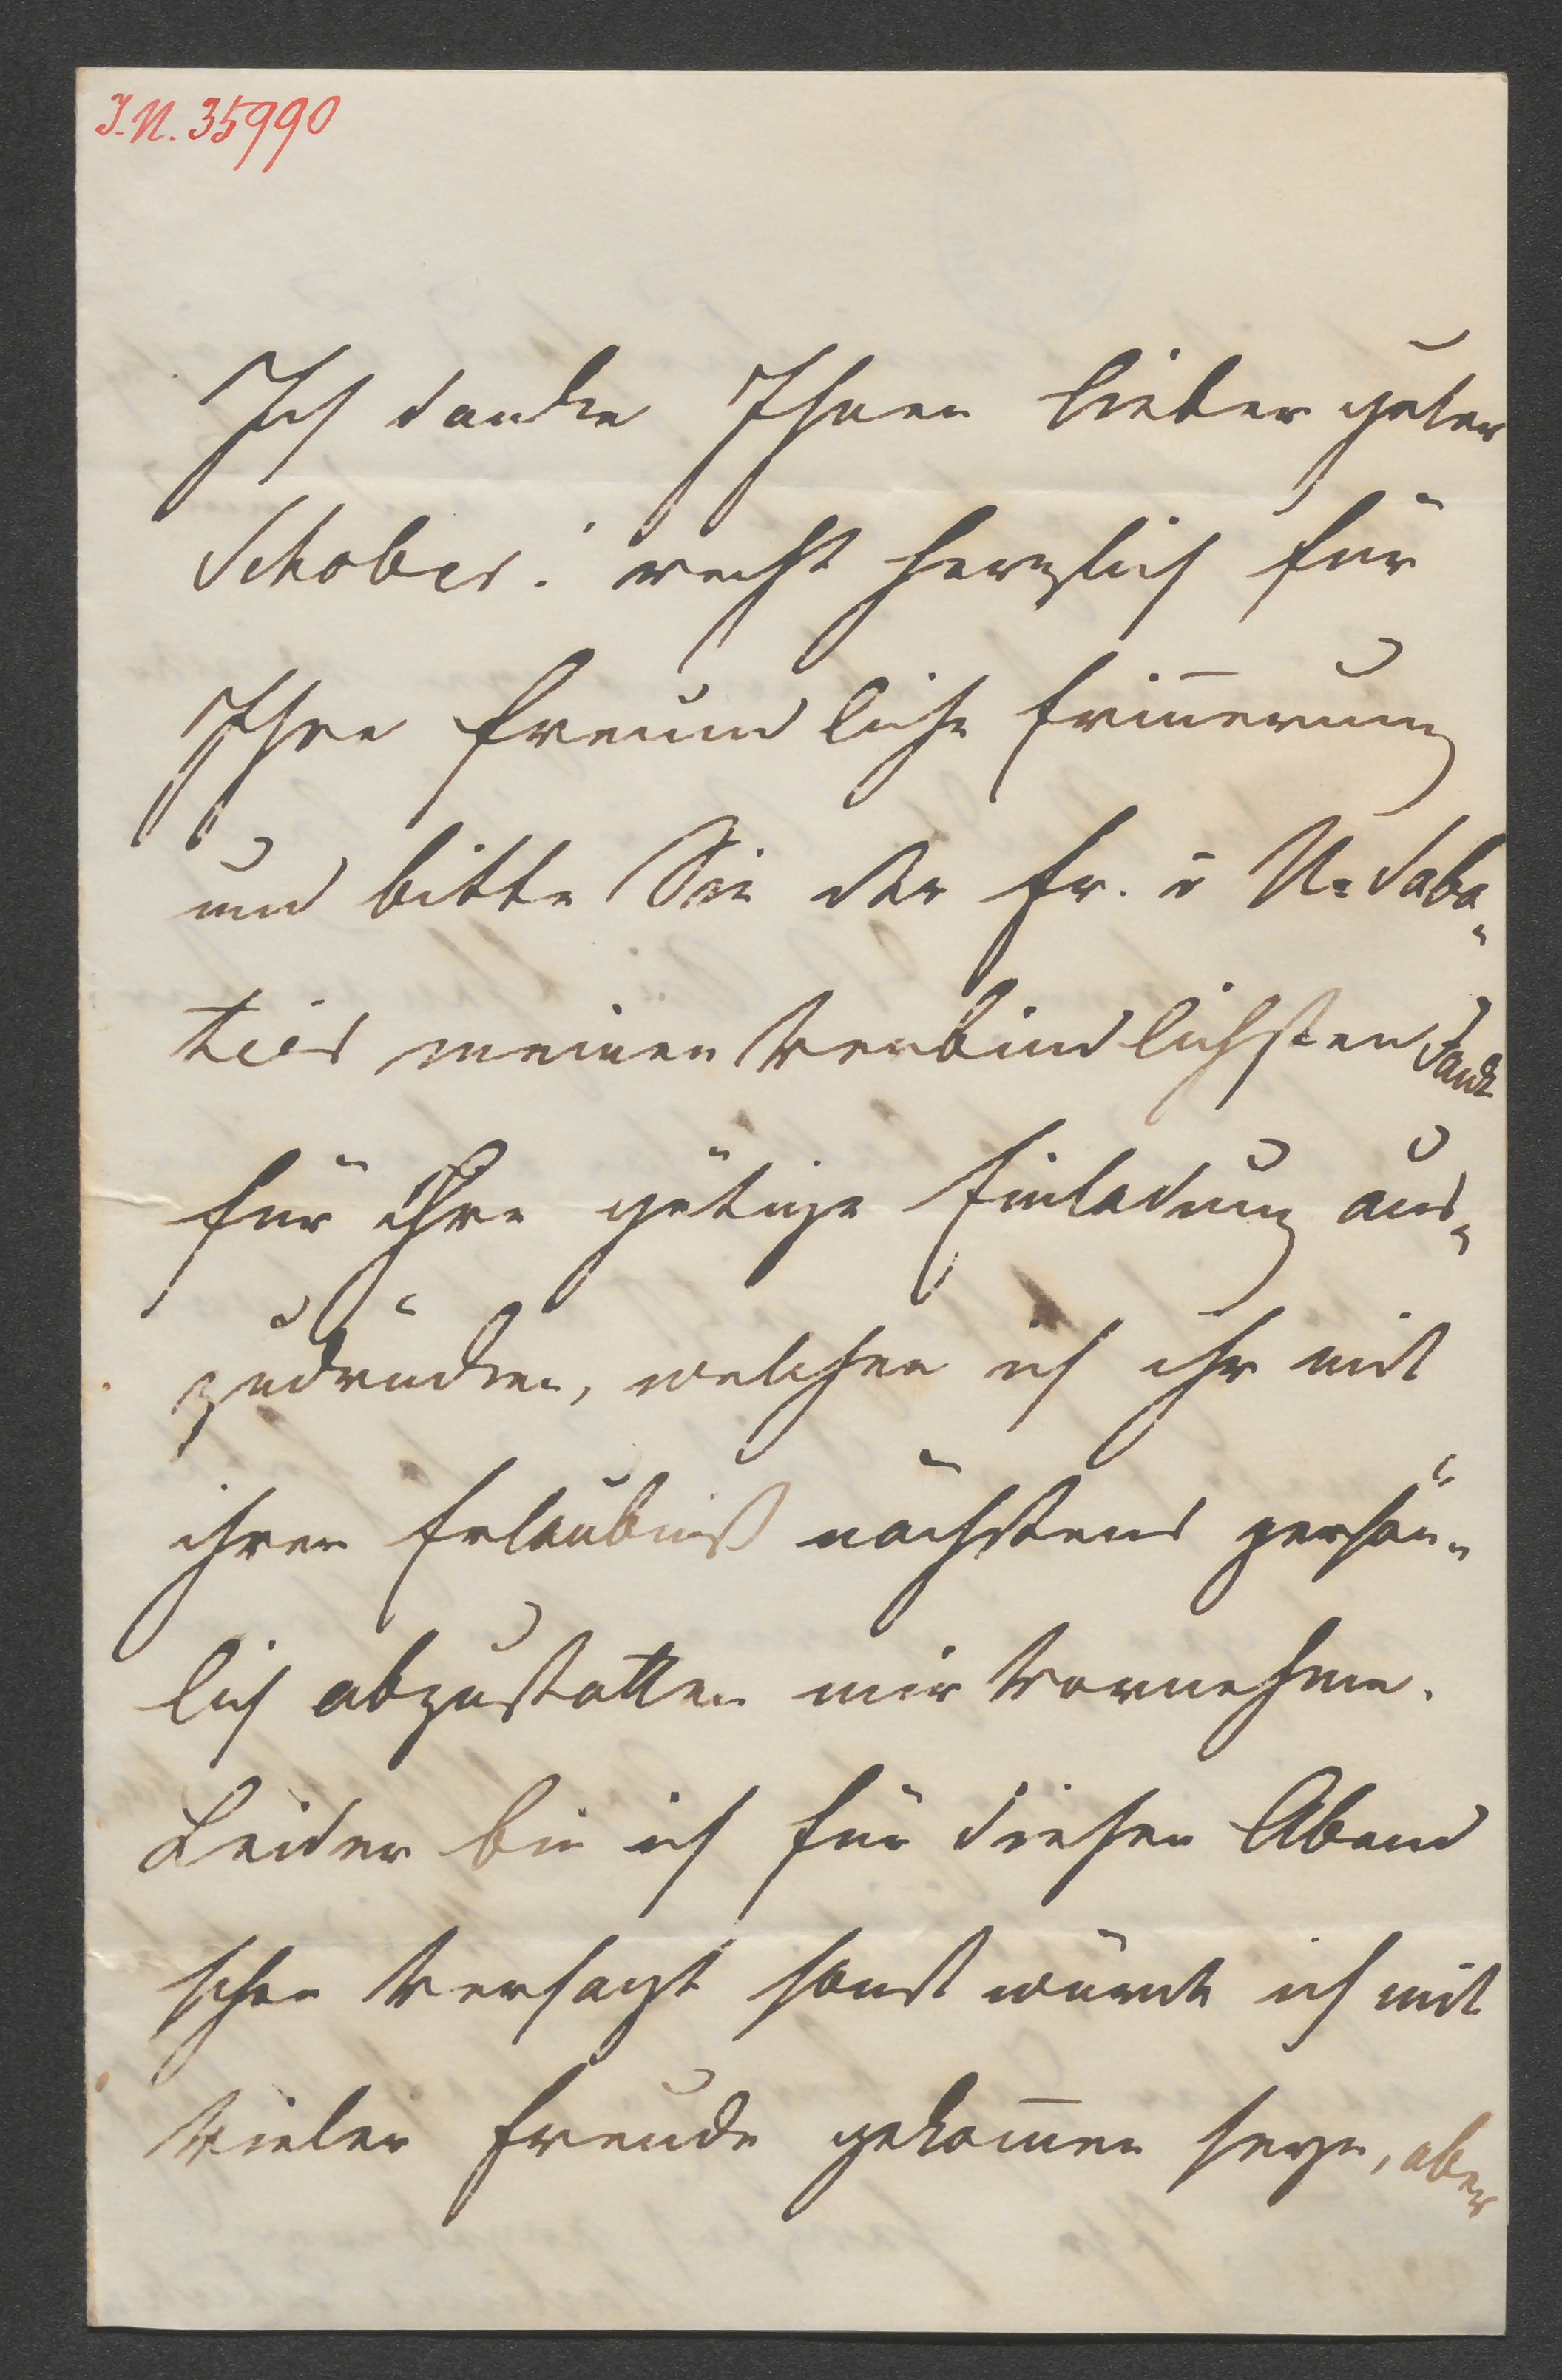 I.N. 35990
Ich danke Ihnen lieber guter
Schober! recht herzlich für
Ihre freundliche Erin̄erung
und bitte Sie der Fr. v U= Saba=
tier meinen verbindlichsten Dank
für ihre gütige Einladung aus=
zudrücken, welchen ich ihr mit
ihrer Erlaubniß nächstens persön=
lich abzustatten mir vornehme.
Leider bin ich für diesen Abend
schon versagt sonst würde ich mit
vieler Freude gekom̄en seyn, aber